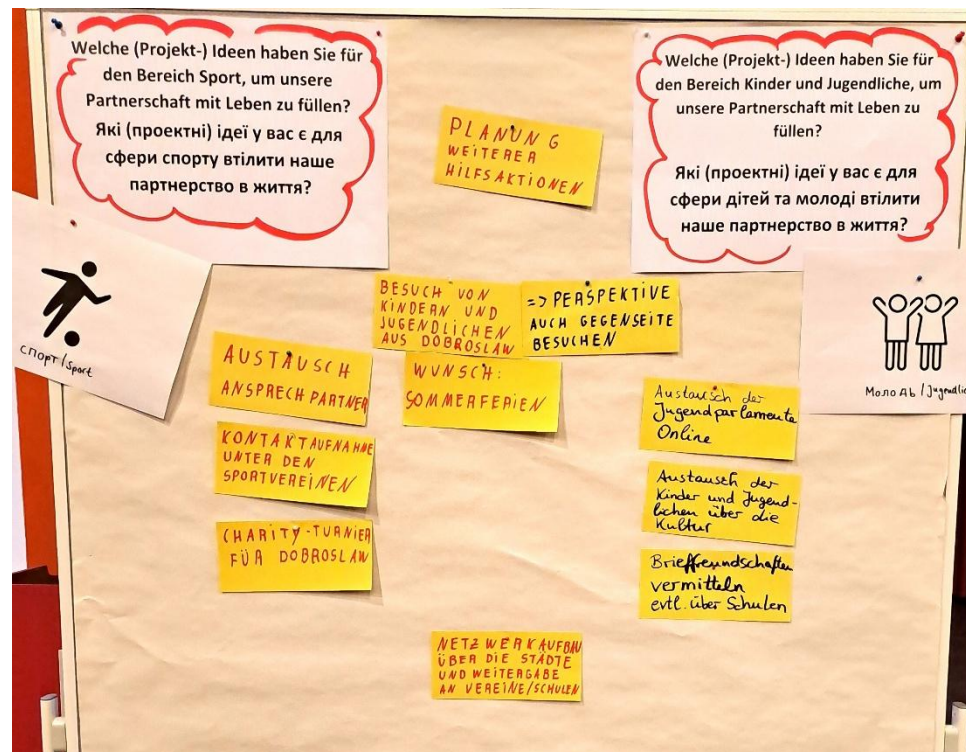 Welche (Projekt-) Ideen haben Sie für
den Bereich Sport, um unsere
Partnerschaft mit Leben zu füllen?
Які (проектні) ідеї у вас є для
сфери спорту втілити наше
партнерство в життя?
Welche (Projekt-) Ideen haben Sie für
den Bereich Kinder und Jugendliche, um
unsere Partnerschaft mit Leben zu
füllen?
Які (проектні) ідеї у вас є для
сфери дітей та молоді втілити
наше партнерство в життя?
PLANUNG
WEITERER
HILFSAKTIONEN
спорт / Sport
BESUCH VON
KINDERN UND
JUGENDLICHEN
AUS DOBROSLAW
=> PERSPEKTIVE
AUCH GEGENSEITE
BESUCHEN
WUNSCH:
SOMMERFERIEN
AUSTAUSCH
ANSPRECHPARTNER
KONTAKTAUFNAHME
UNTER DEN
SPORTVEREINEN
CHARITY-TURNIER
FÜR DOBROSLAW
Молодь / Jugendlic
Austausch der
Jugendparlamente
Online
Austausch der
Kinder und Jugend-
lichen über die
Kultur
Brieffreundschaften
vermitteln
evtl. über Schulen
NETZWERKAUFBAU
ÜBER DIE STÄDTE
UND WEITERGABE
AN VEREINE/SCHULEN